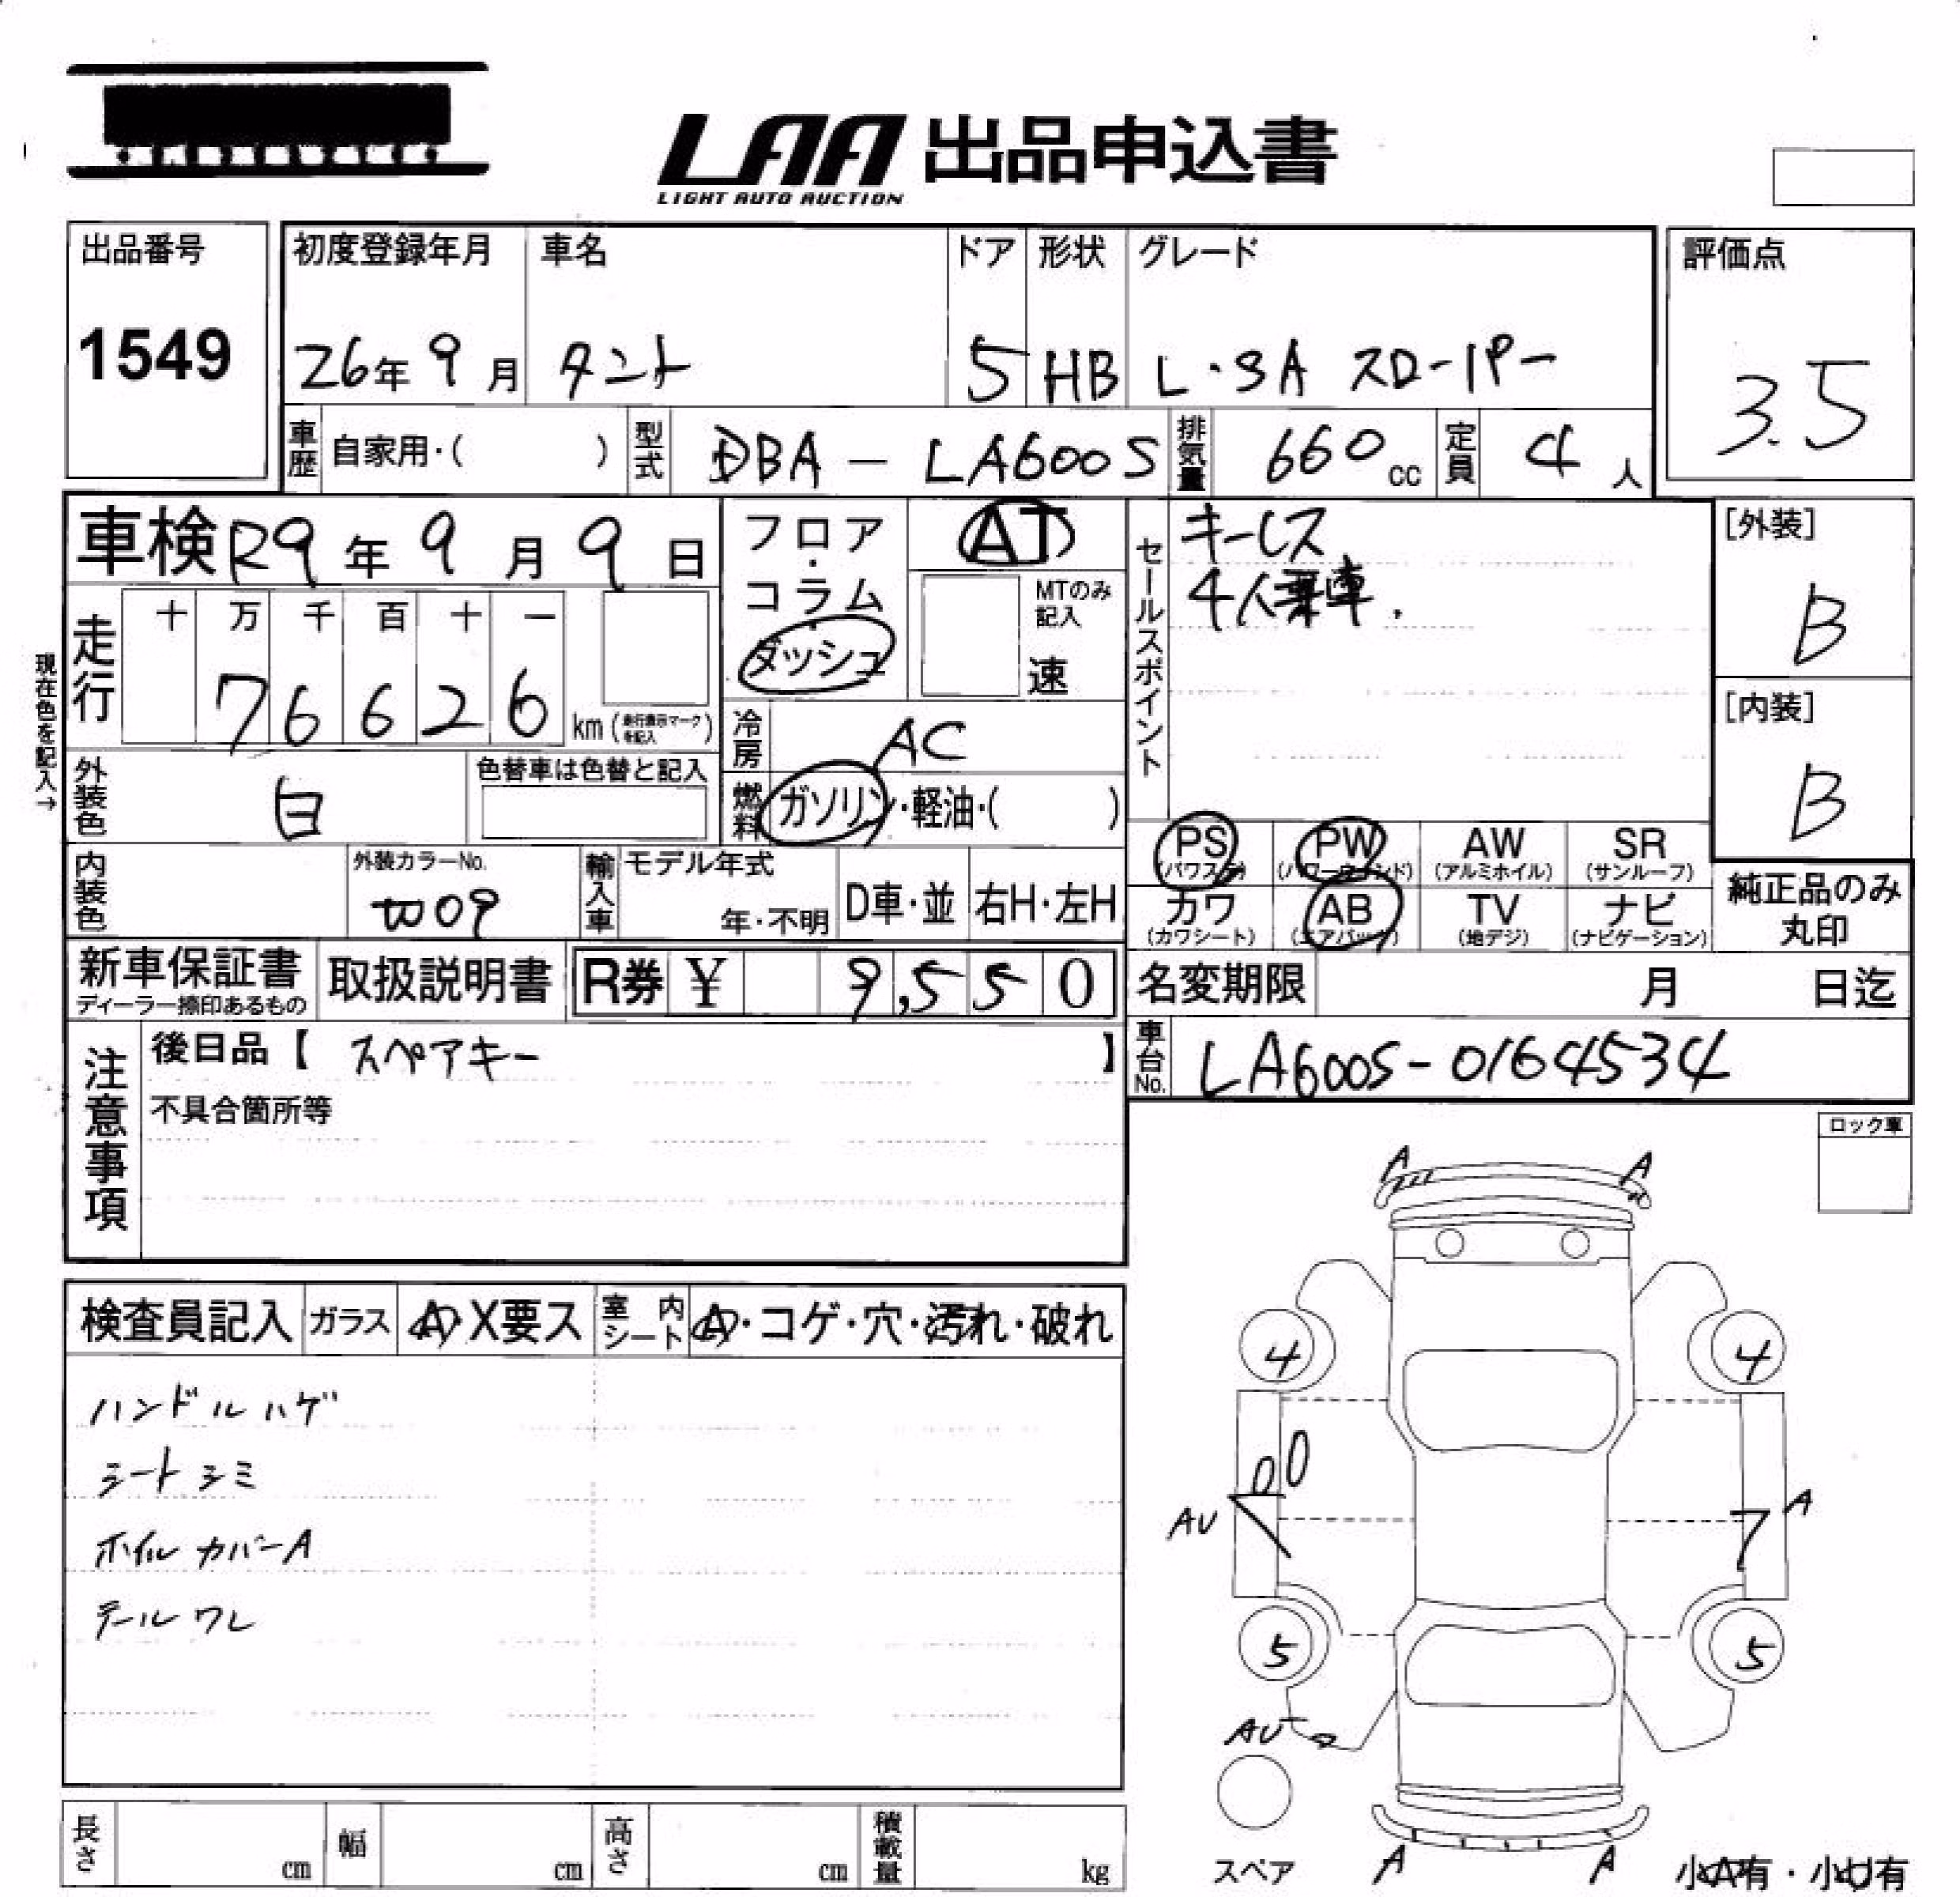 LAA 出品申込書
LIGHT AUTO AUCTION
出品番号
1549
初度登録年月
26年 9月
車名
タント
ドア
5
形状
HB
グレード
L・SA スローパー
評価点
3.5
車歴 自家用・( )
型式 DBA - LA600S
排気量 660cc
定員 4人
車検 R9年 9月 9日
フロア・コラム・ダッシュ
AT
MTのみ記入
速
セールスポイント
キーレス
4人乗車.
[外装]
B
[内装]
B
現在色を記入→
走行
十 万 千 百 十 一
7 6 6 2 6 km (走行表示マークを記入)
冷房 AC
燃料 ガソリン・軽油・( )
外装色 白
色替車は色替と記入
内装色
外装カラーNo.
W09
輸入車 モデル年式
年・不明
D車・並
右H・左H
PS (パワステ)
PW (パワーウインド)
AW (アルミホイル)
SR (サンルーフ)
カワ (カワシート)
AB (エアバック)
TV (地デジ)
ナビ (ナビゲーション)
純正品のみ丸印
新車保証書
ディーラー捺印あるもの
取扱説明書
R券 ¥ 9,550
名変期限 月 日迄
車台No. LA600S-0164534
注意事項
後日品【 スペアキー 】
不具合箇所等
ロック車
検査員記入 ガラス A・X要ス 室内シート A・コゲ・穴・汚れ・破れ
ハンドルハゲ
シートシミ
ホイルカバーA
テールワレ
A A
4 4
AU A
5 5
AU
A A
スペア
小A有・小U有
長さ cm 幅 cm 高さ cm 積載量 kg